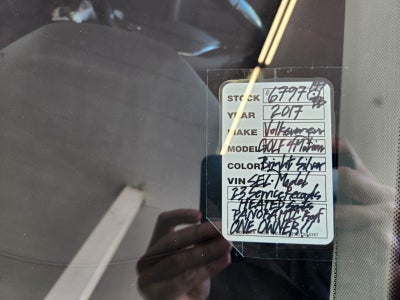 STOCK 6797
YEAR 2017
MAKE Volkswagen
MODEL GOLF 4Motion
COLOR Bright Silver
VIN SEL Model
23 Service Records
HEATED Seats
PANORAMIC Roof
ONE OWNER!!